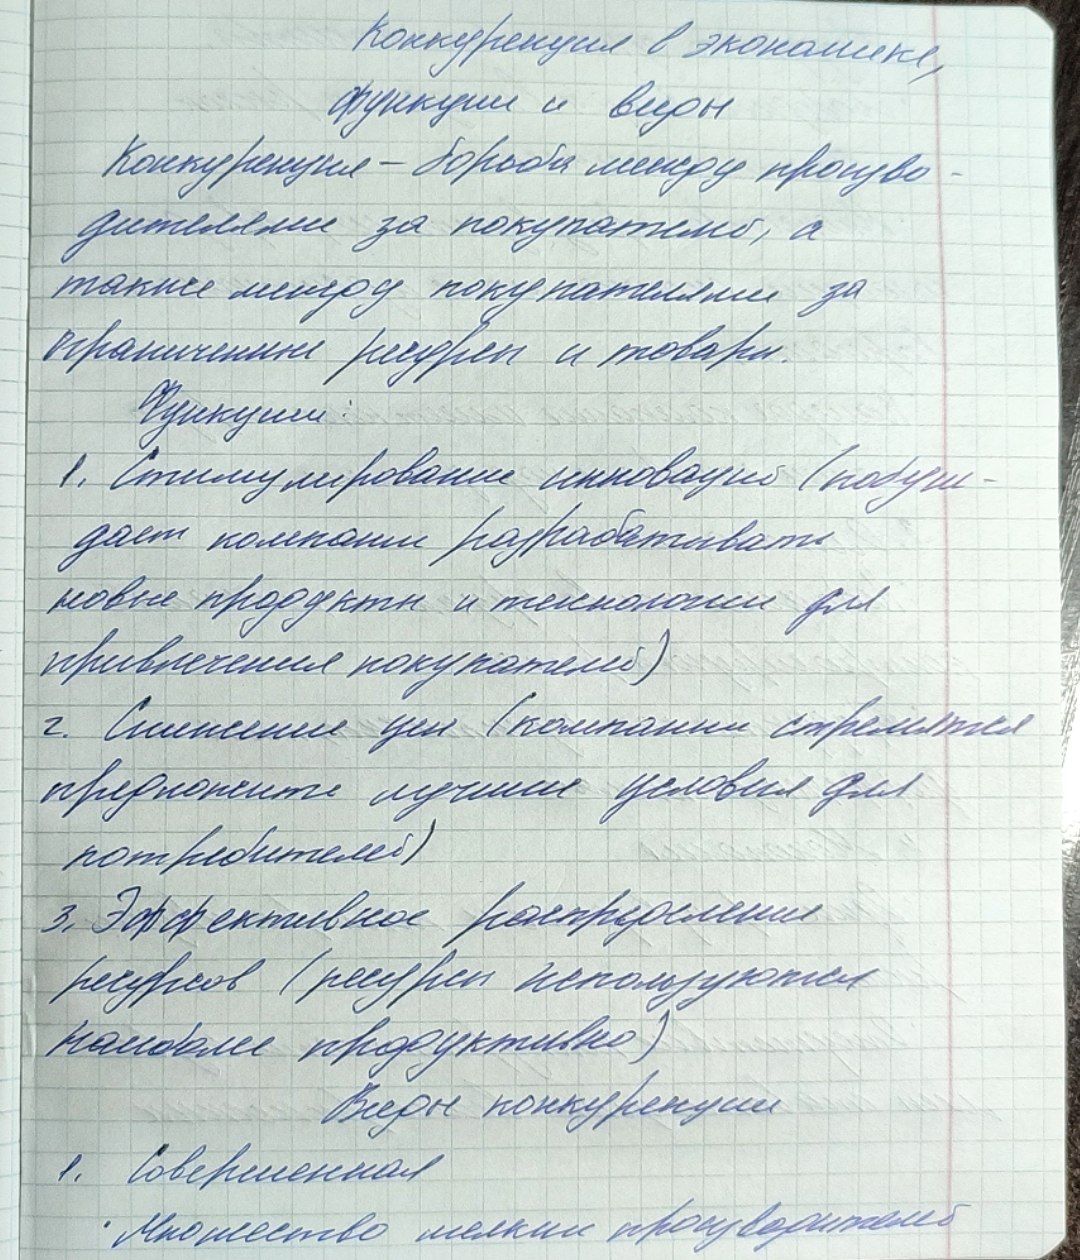 Конкуренция в экономике,
функции и виды
Конкуренция – борьба между произво-
дителями за покупателей, а
также между покупателями за
ограниченные ресурсы и товары.
Функции:
1. Стимулирование инноваций (побуж-
дает компании разрабатывать
новые продукты и технологии для
привлечения покупателей)
2. Снижение цен (компании стремятся
предложить лучшие условия для
потребителей)
3. Эффективное распределение
ресурсов (ресурсы используются
наиболее продуктивно)
Виды конкуренции
1. Совершенная
· Множество мелких производителей